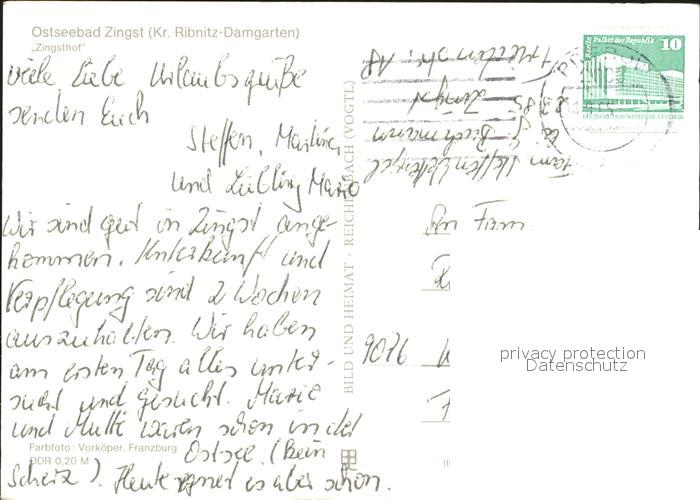 Ostseebad Zingst (Kr. Ribnitz-Damgarten)
„Zingsthof“
viele liebe Urlaubsgrüße
senden Euch
Steffen, Martina
und Liebling Mario
Wir sind gut in Zingst ange-
kommen. Unterkunft und
Verpflegung sind 2 Wochen
auszuhalten. Wir haben
am ersten Tag alles unter-
sucht und gesucht. Mario
und Mutti waren schon in der
Ostsee. (Kein
Scherz). Heute regnet es aber schon.
Farbfoto: Vorköper, Franzburg
DDR 0,20 M
BILD UND HEIMAT · REICHENBACH (VOGTL)
Fam. Steffen
Zingst
Berlin Palast der Republik
10
DEUTSCHE DEMOKRATISCHE REPUBLIK
An Fam.
privacy protection
Datenschutz